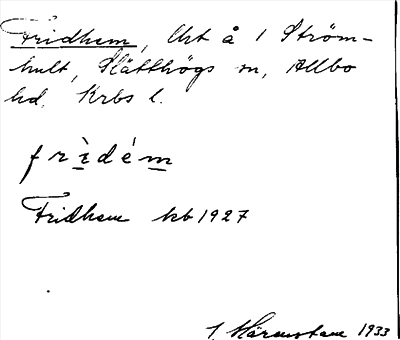 Fridhem, Urt å 1 Ström-
hult, Slätthögs sn, Allbo
hd, Krbs l.
frìdém
Fridhem kb 1927
1933